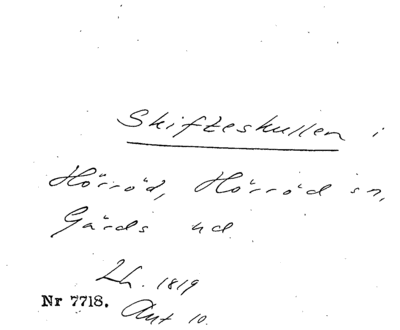 Skifteskullen i
Hörröd, Hörröd sn,
Gärds hd.
Lh. 1819
Nr 7718. Ant 10.